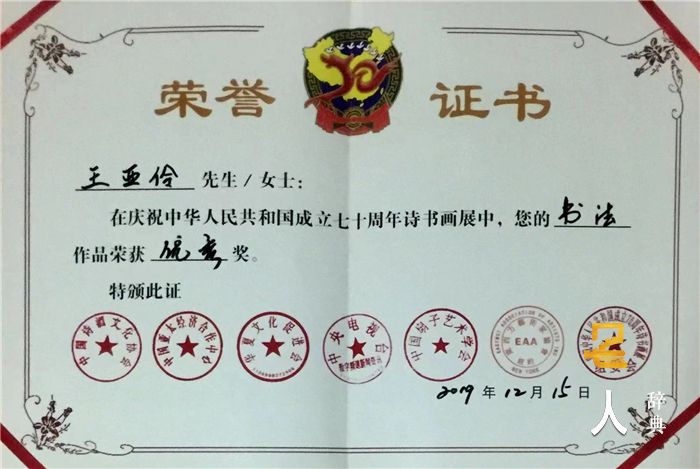 荣誉 证书
王亚伶 先生/女士：
在庆祝中华人民共和国成立七十周年诗书画展中，您的 书法
作品荣获 优秀 奖。
特颁此证
中国诗疆文化协会
中国亚太经济合作中心
华夏文化促进会
中央电视台
数字频道新闻 
中国扇子艺术学会
EAA
NEW YORK
2019年12月15日
人 辞典